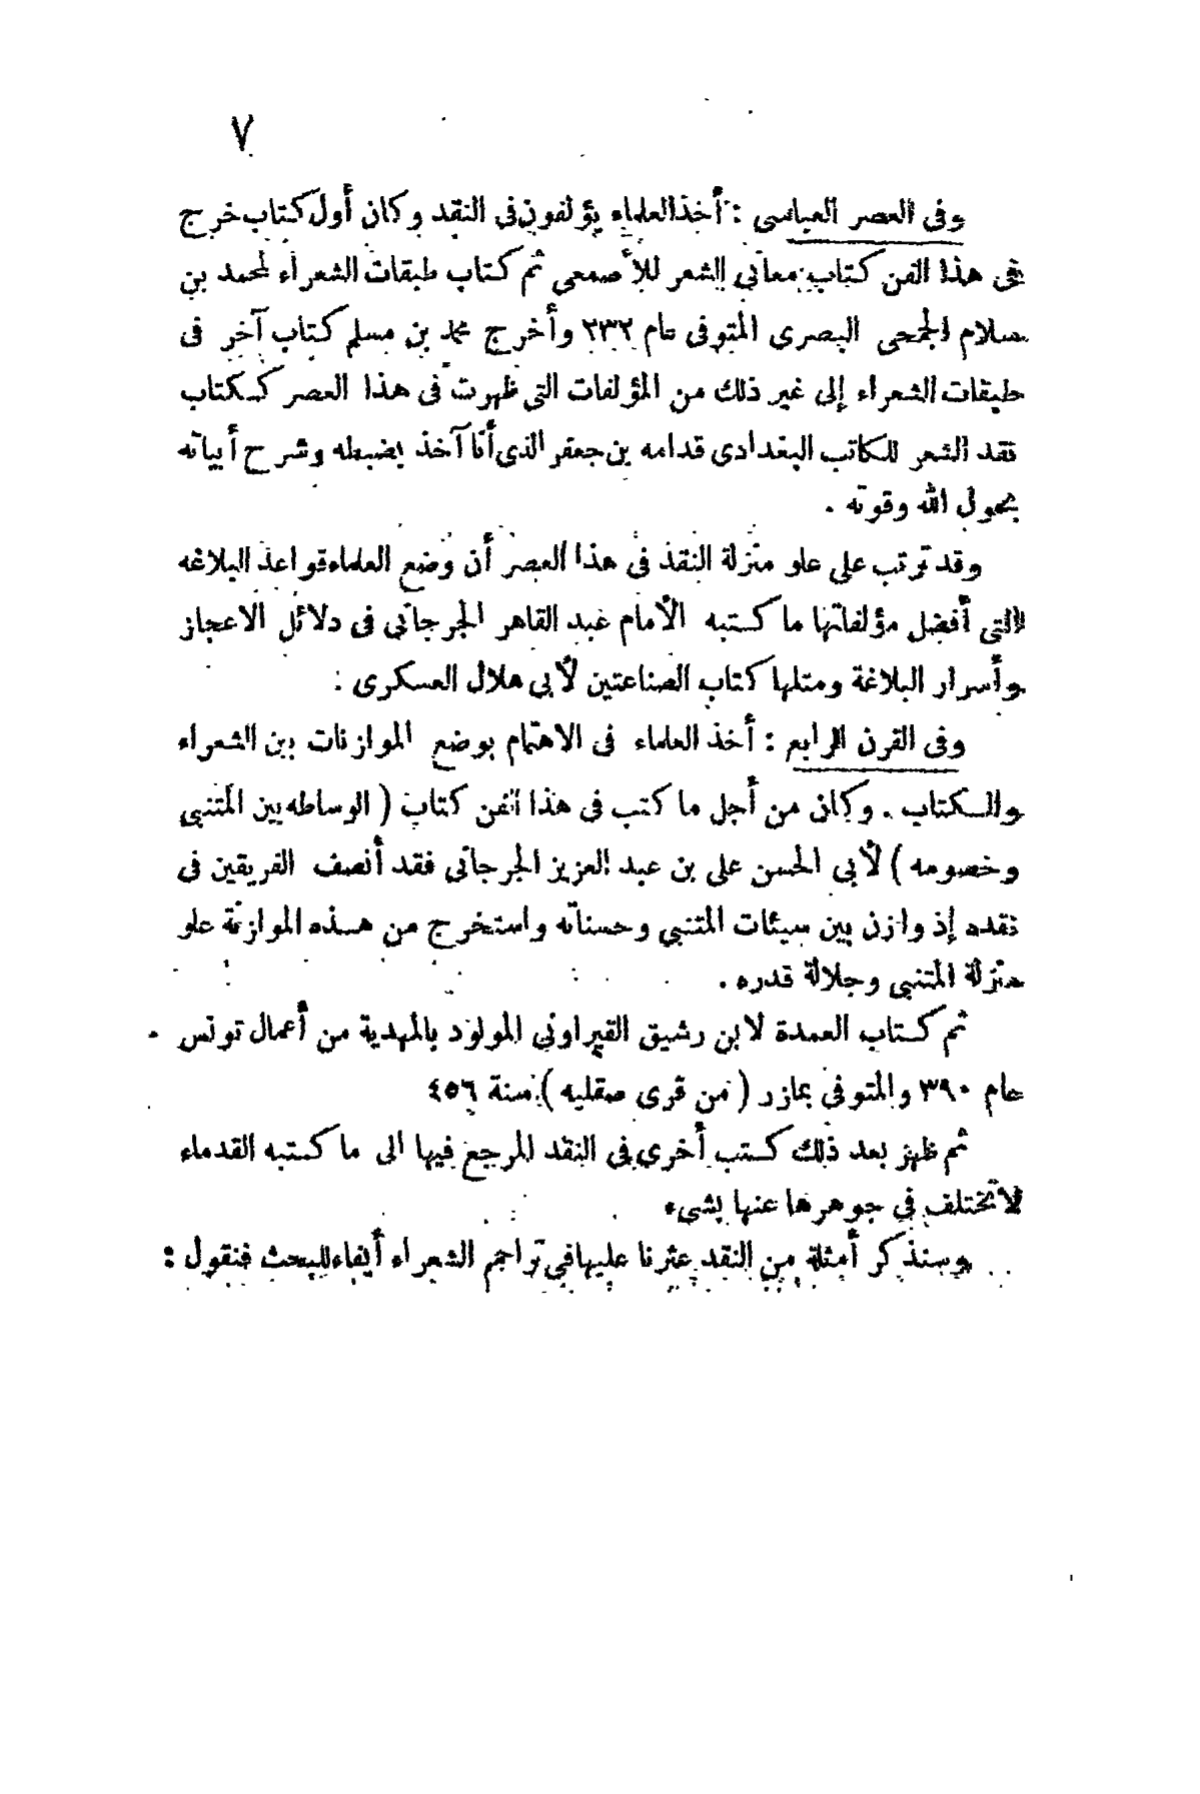 ٧
وفى العصر العباسى : أخذ العلماء يؤلفون فى النقد وكان أول كتاب خرج
فى هذا الفن كتاب معانى الشعر للأصمعى ثم كتاب طبقات الشعراء لمحمد بن
سلام الجمحى البصرى المتوفى عام ٢٣٢ وأخرج محمد بن مسلم كتاب آخر فى
طبقات الشعراء إلى غير ذلك من المؤلفات التى ظهرت فى هذا العصر ككتاب
نقد الشعر للكاتب البغدادى قدامه بن جعفر الذى أنا آخذ بضبطه وشرح أبياته
بحول الله وقوته .
وقد ترتب على علو منزلة النقد فى هذا العصر أن وضع العلماء قواعد البلاغه
التى أفضل مؤلفاتها ما كتبه الأمام عبد القاهر الجرجانى فى دلائل الاعجاز
وأسرار البلاغة ومثلها كتاب الصناعتين لأبى هلال العسكرى :
وفى القرن الرابع : أخذ العلماء فى الاهتمام بوضع الموازنات بين الشعراء
والكتاب . وكان من أجل ما كتب فى هذا الفن كتاب ( الوساطه بين المتنبى
وخصومه ) لأبى الحسن على بن عبد العزيز الجرجانى فقد أنصف الفريقين فى
نقده إذ وازن بين سيئات المتنبى وحسناته واستخرج من هذه الموازنة علو
منزلة المتنبى وجلالة قدره .
ثم كتاب العمدة لابن رشيق القيراونى المولود بالمهدية من أعمال تونس
عام ٣٩٠ والمتوفى بمازر ( من قرى صقليه ) سنة ٤٥٦
ثم ظهر بعد ذلك كتب أخرى فى النقد المرجع فيها الى ما كتبه القدماء
لا تختلف فى جوهرها عنها بشىء
وسنذكر أمثلة من النقد عثرنا عليها فى تراجم الشعراء أيفاء للبحث فنقول :